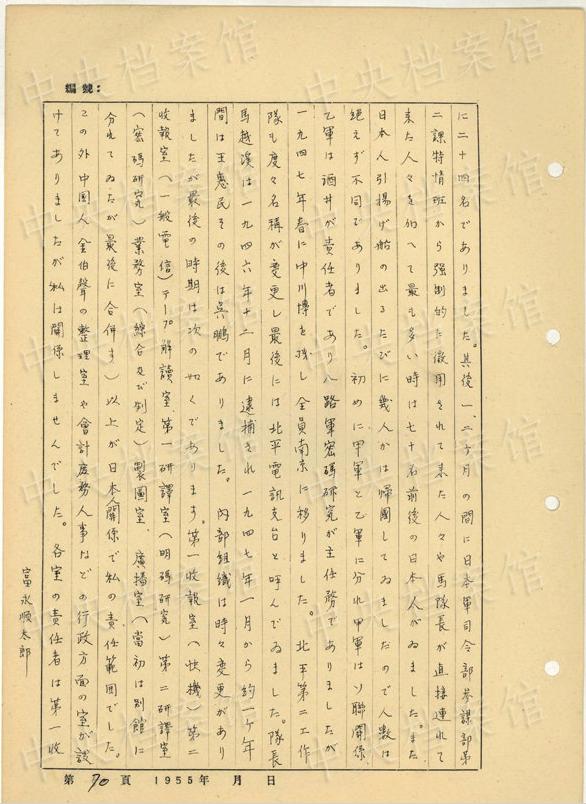 編號：
に二十四名でありました。其後一、二ケ月の間に日本軍司令部参謀部第
二課特情班から强制的な徴用されて来た人々や馬隊長が直接連れて
来た人々を加へて最も多い時は七十名前後の日本人がゐました。また
日本人引揚げ船の出るたびに幾人かは帰國してゐましたので人数は
絶えず不同でありました。初めに甲軍と乙軍に分れ甲軍はソ聯関係
乙軍は酒井が責任者であり八路軍密碼研究が主任務でありましたが
一九四七年春に中川博を残し全員南京に移りました。北平第二工作
隊も度々名稱が変更し最後には北平電訊支台と呼んでゐました。隊長
馬越漢は一九四六年十二月に逮捕され一九四七年一月から約一ケ年
間は王惠民その後は吳鵬でありました。内部組織は時々変更があり
ましたが最後の時期は次の如くであります。第一收報室（快機）第二
收報室（一般電信）テープ解讀室、第一研譯室（明碼研究）第二研譯室
（密碼研究）業務室（綜合及び判定）製圖室、廣播室（當初は別館に
分れてゐたが最後に合併す）以上が日本関係で私の責任範囲でした。
この外中國人金伯聲の整理室や會計庶務人事などの行政方面の室が設
けてありましたが私は関係しませんでした。各室の責任者は第一收
富永順太郎
第 70 頁 1955年 月 日
中央档案馆